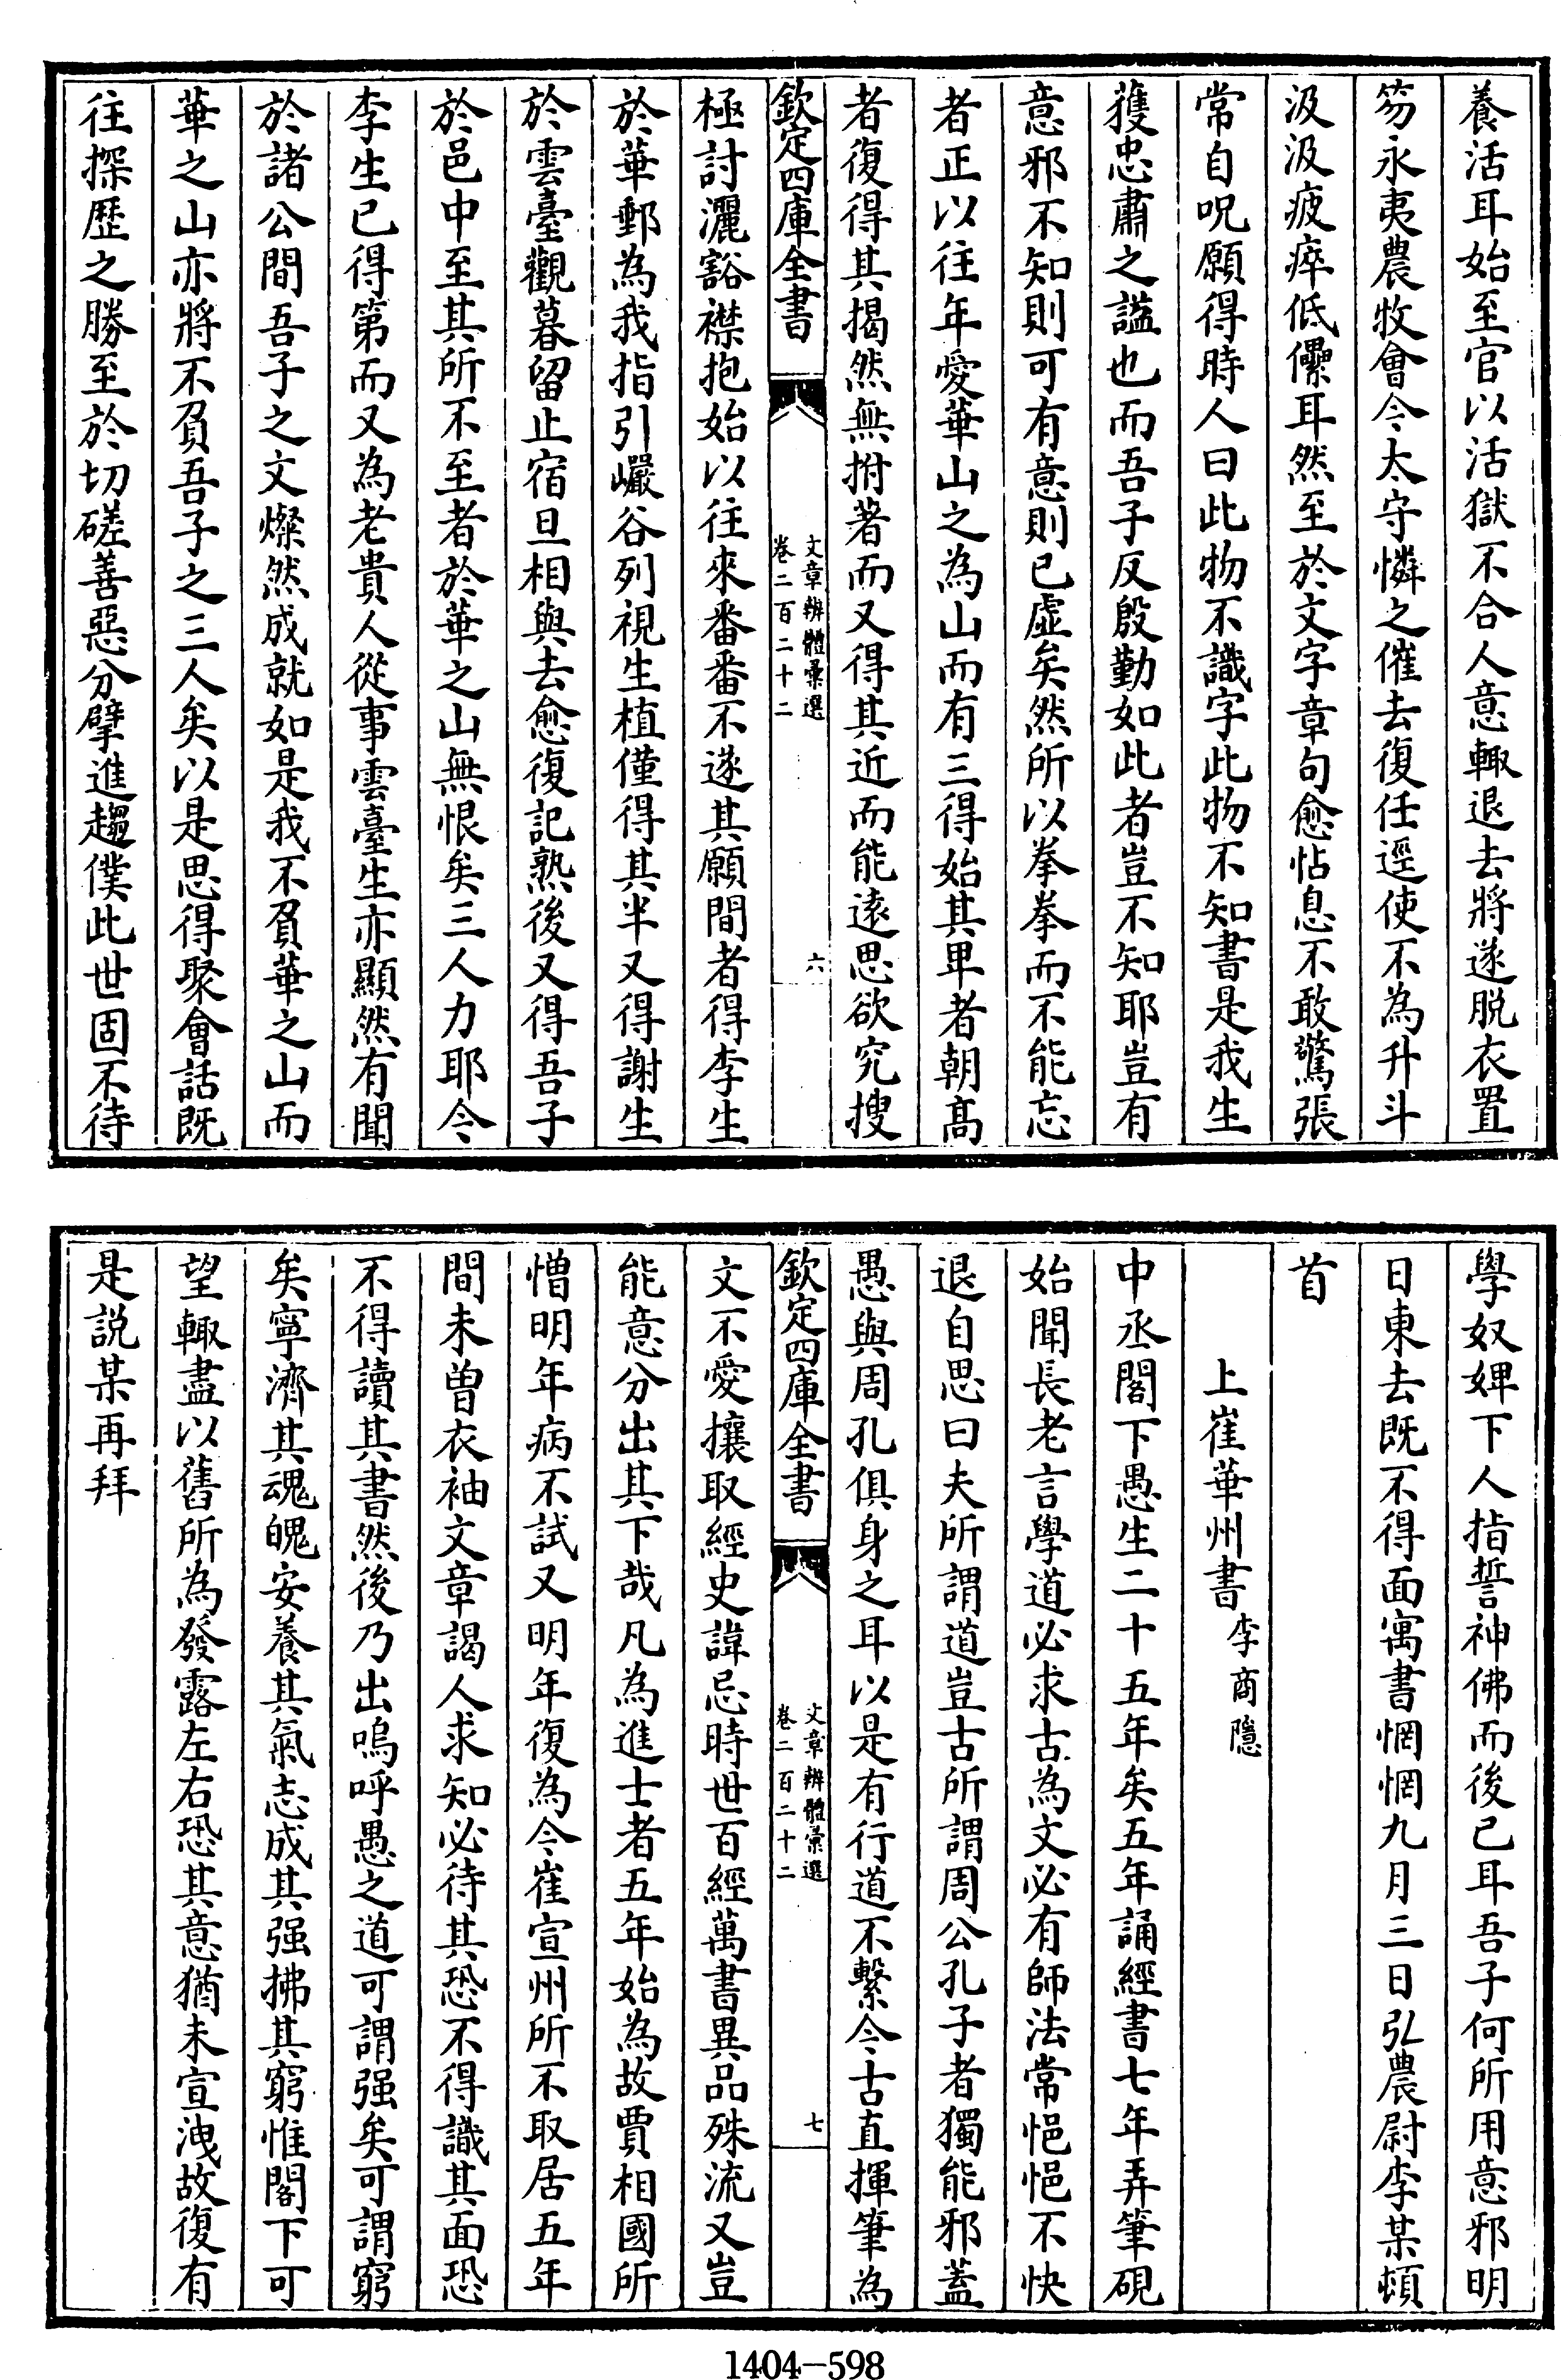 養活耳始至官以活獄不合人意輙退去將遂脱衣置
笏永夷農牧會今太守憐之催去復任逕使不為升斗
汲汲疲瘁低儽耳然至於文字章句愈怗息不敢驚張
常自呪願得時人曰此物不識字此物不知書是我生
獲忠肅之諡也而吾子反殷勤如此者豈不知耶豈有
意邪不知則可有意則已虛矣然所以拳拳而不能忘
者正以往年愛華山之為山而有三得始其卑者朝髙
者復得其揭然無拊著而又得其近而能逺思欲究搜
欽定四庫全書
文章辨體彙選
卷二百二十二
六
極討灑豁襟抱始以往來番番不遂其願間者得李生
於華郵為我指引巖谷列視生植僅得其半又得謝生
於雲臺觀暮留止宿旦相與去愈復記熟後又得吾子
於邑中至其所不至者於華之山無恨矣三人力耶今
李生已得第而又為老貴人從事雲臺生亦顯然有聞
於諸公間吾子之文燦然成就如是我不負華之山而
華之山亦將不負吾子之三人矣以是思得聚會話既
往探歴之勝至於切磋善惡分擘進趨僕此世固不待
學奴婢下人指誓神佛而後已耳吾子何所用意邪明
日東去既不得面寓書惘惘九月三日弘農尉李某頓
首
上崔華州書 李商隱
中丞閣下愚生二十五年矣五年誦經書七年弄筆硯
始聞長老言學道必求古為文必有師法常悒悒不快
退自思曰夫所謂道豈古所謂周公孔子者獨能邪蓋
愚與周孔俱身之耳以是有行道不繫今古直揮筆為
欽定四庫全書
文章辨體彙選
卷二百二十二
七
文不愛攘取經史諱忌時世百經萬書異品殊流又豈
能意分出其下哉凡為進士者五年始為故賈相國所
憎明年病不試又明年復為今崔宣州所不取居五年
間未曽衣袖文章謁人求知必待其恐不得識其面恐
不得讀其書然後乃出嗚呼愚之道可謂强矣可謂窮
矣寧濟其魂魄安養其氣志成其强拂其窮惟閣下可
望輙盡以舊所為發露左右恐其意猶未宣洩故復有
是説某再拜
1404-598